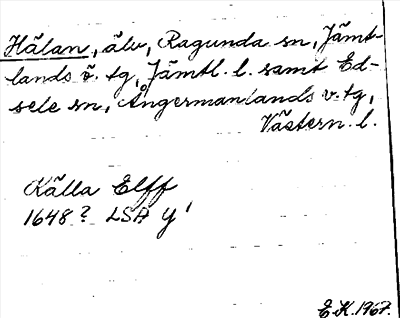 Hälan, älv, Ragunda sn, Jämt-
lands ö. tg, Jämtl. l. samt Ed-
sele sn, Ångermanlands v. tg,
Västern. l.
Källa Elff
1648? LSA Y'
E.K. 1967.